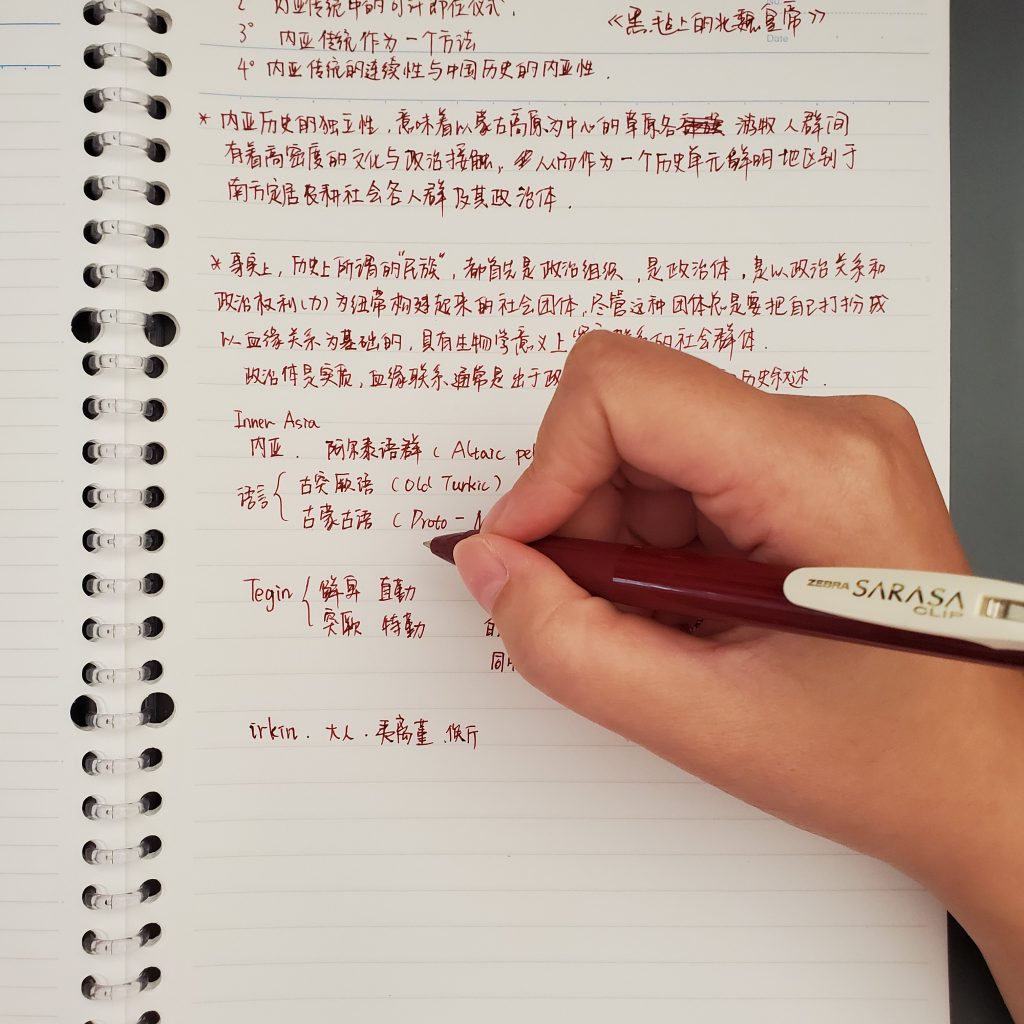 2° 内亚传统中的可汗即位仪式.
《黑毡上的北魏皇帝》
Date
3° 内亚传统作为一个方法
4° 内亚传统的连续性与中国历史的内亚性.
* 内亚历史的独立性,意味着以蒙古高原为中心的草原各 游牧人群间
有着高密度的文化与政治接触, 从而作为一个历史单元鲜明地区别于
南方定居农耕社会各人群及其政治体.
* 事实上, 历史上所谓的"民族", 都首先是政治组织, 是政治体, 是以政治关系和
政治权利(力)为纽带构建起来的社会团体, 尽管这种团体总是要把自己打扮成
以血缘关系为基础的, 具有生物学意义上 的社会群体.
政治体是实质, 血缘联系通常是出于政 历史叙述.
Inner Asia
内亚. 阿尔泰语群 ( Altaic
语言 { 古突厥语 (Old Turkic)
古蒙古语 ( Proto -
Tegin { 鲜卑 直勤
突厥 特勤
同
irkin. 大人. 俟斤
ZEBRA SARASA CLIP